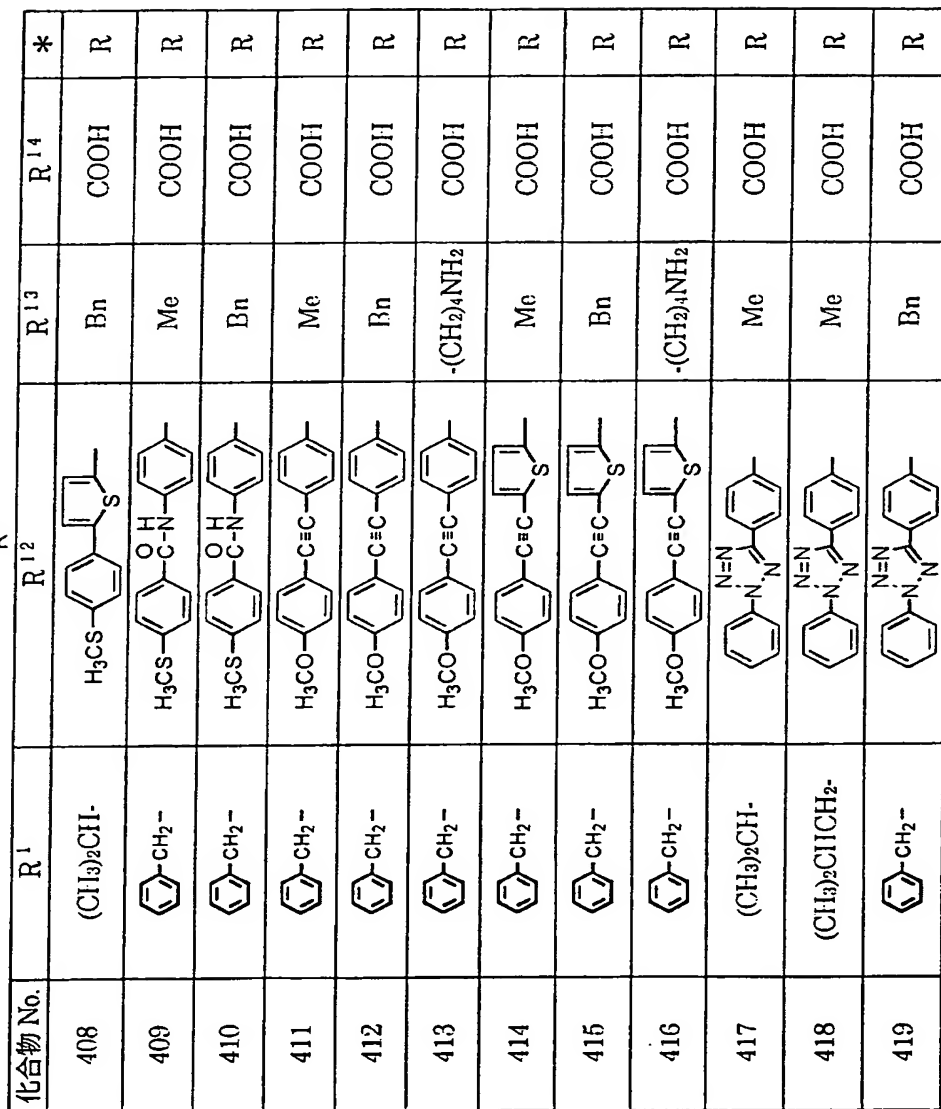 R
化合物 No. R¹ R¹² R¹³ R¹⁴ *
408 (CH₃)₂CH- H₃CS S Bn COOH R
409 CH₂- H₃CS O C-N H Me COOH R
410 CH₂- H₃CS O C-N H Bn COOH R
411 CH₂- H₃CO C≡C Me COOH R
412 CH₂- H₃CO C≡C Bn COOH R
413 CH₂- H₃CO C≡C -(CH₂)₄NH₂ COOH R
414 CH₂- H₃CO C≡C S Me COOH R
415 CH₂- H₃CO C≡C S Bn COOH R
416 CH₂- H₃CO C≡C S -(CH₂)₄NH₂ COOH R
417 (CH₃)₂CH- N=N N N Me COOH R
418 (CH₃)₂CHCH₂- N=N N N Me COOH R
419 CH₂- N=N N N Bn COOH R